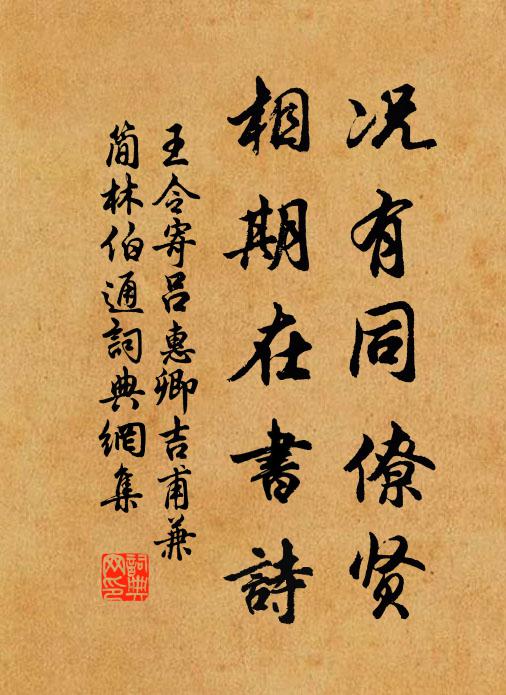 况有同僚贤
相期在書詩
王令寄吕惠卿吉甫兼
简林伯通詞典網集
詞典
网印